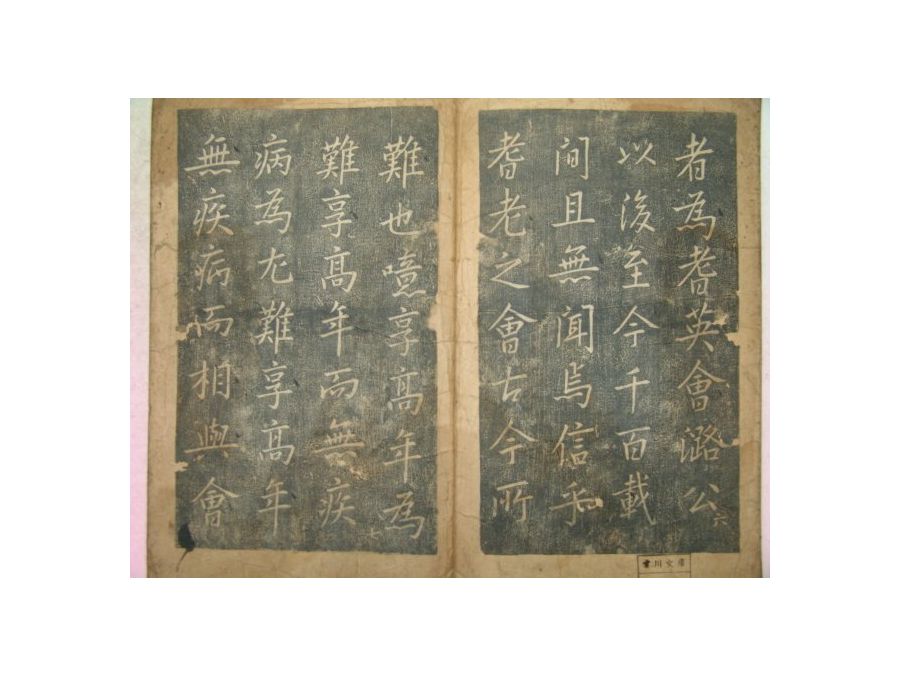 者為耆英會潞公
以後至今千百載
間且無聞焉信乎
耆老之會古今所
難也噫享高年為
難享高年而無疾
病為尤難享高年
無疾病而相與會
六
川文庫